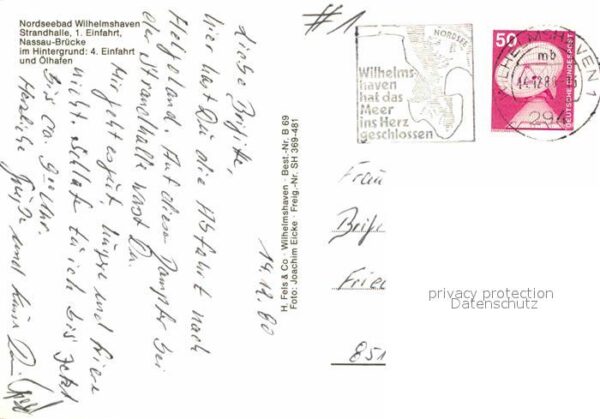 Nordseebad Wilhelmshaven
Strandhalle, 1. Einfahrt,
Nassau-Brücke
im Hintergrund: 4. Einfahrt
und Ölhafen
#1
NORDSEE
Wilhelms-
haven
hat das
Meer
ins Herz
geschlossen
50
DEUTSCHE BUNDESPOST
WILHELMSHAVEN 1
mb
294
14.12.80
Liebe Brigitte,
hier hast Du die Abfahrt nach
Helgoland. Auf diesem Dampfer bei
der Strandhalle warst Du.
Mir geht es gut, huste und friere
nicht. Schlafe für ich bis jetzt
bis ca. 9 Uhr.
Herzliche Grüße und
H. Fels & Co · Wilhelmshaven · Best.-Nr. B 69
Foto: Joachim Eicke · Freig.-Nr. SH 369-481
Frau
Frie
851
privacy protection
Datenschutz